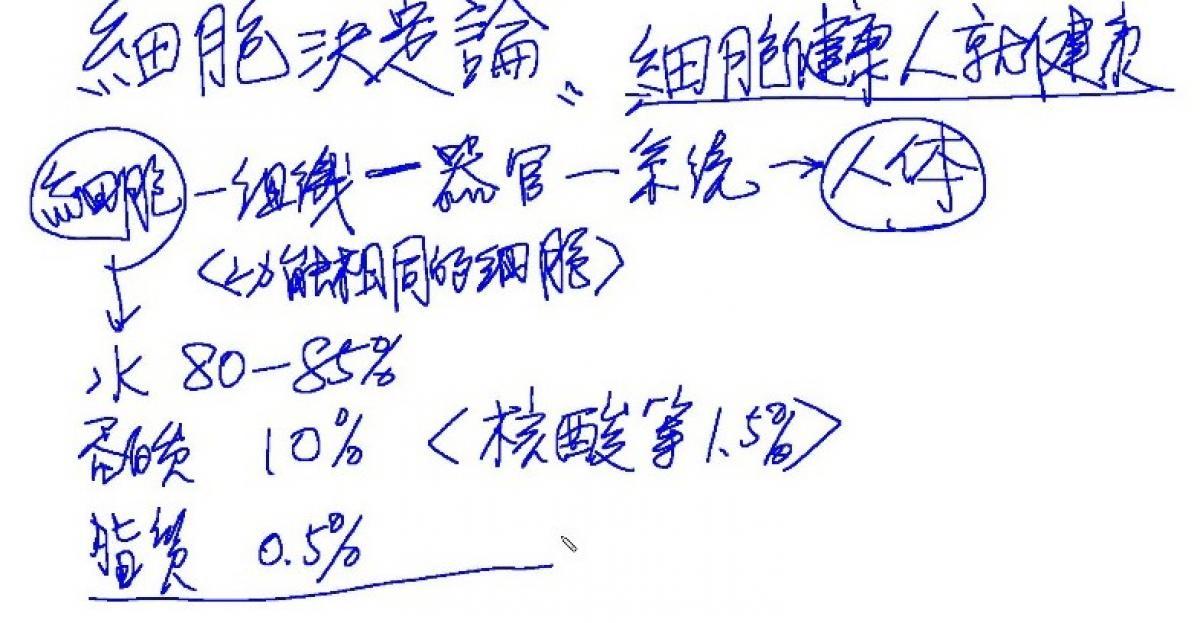 細胞決定論 細胞健康人就健康
細胞—組織—器官—系统→人体
<功能相同的细胞>
水 80-85%
蛋白质 10% <核酸等1.5%>
脂质 0.5%